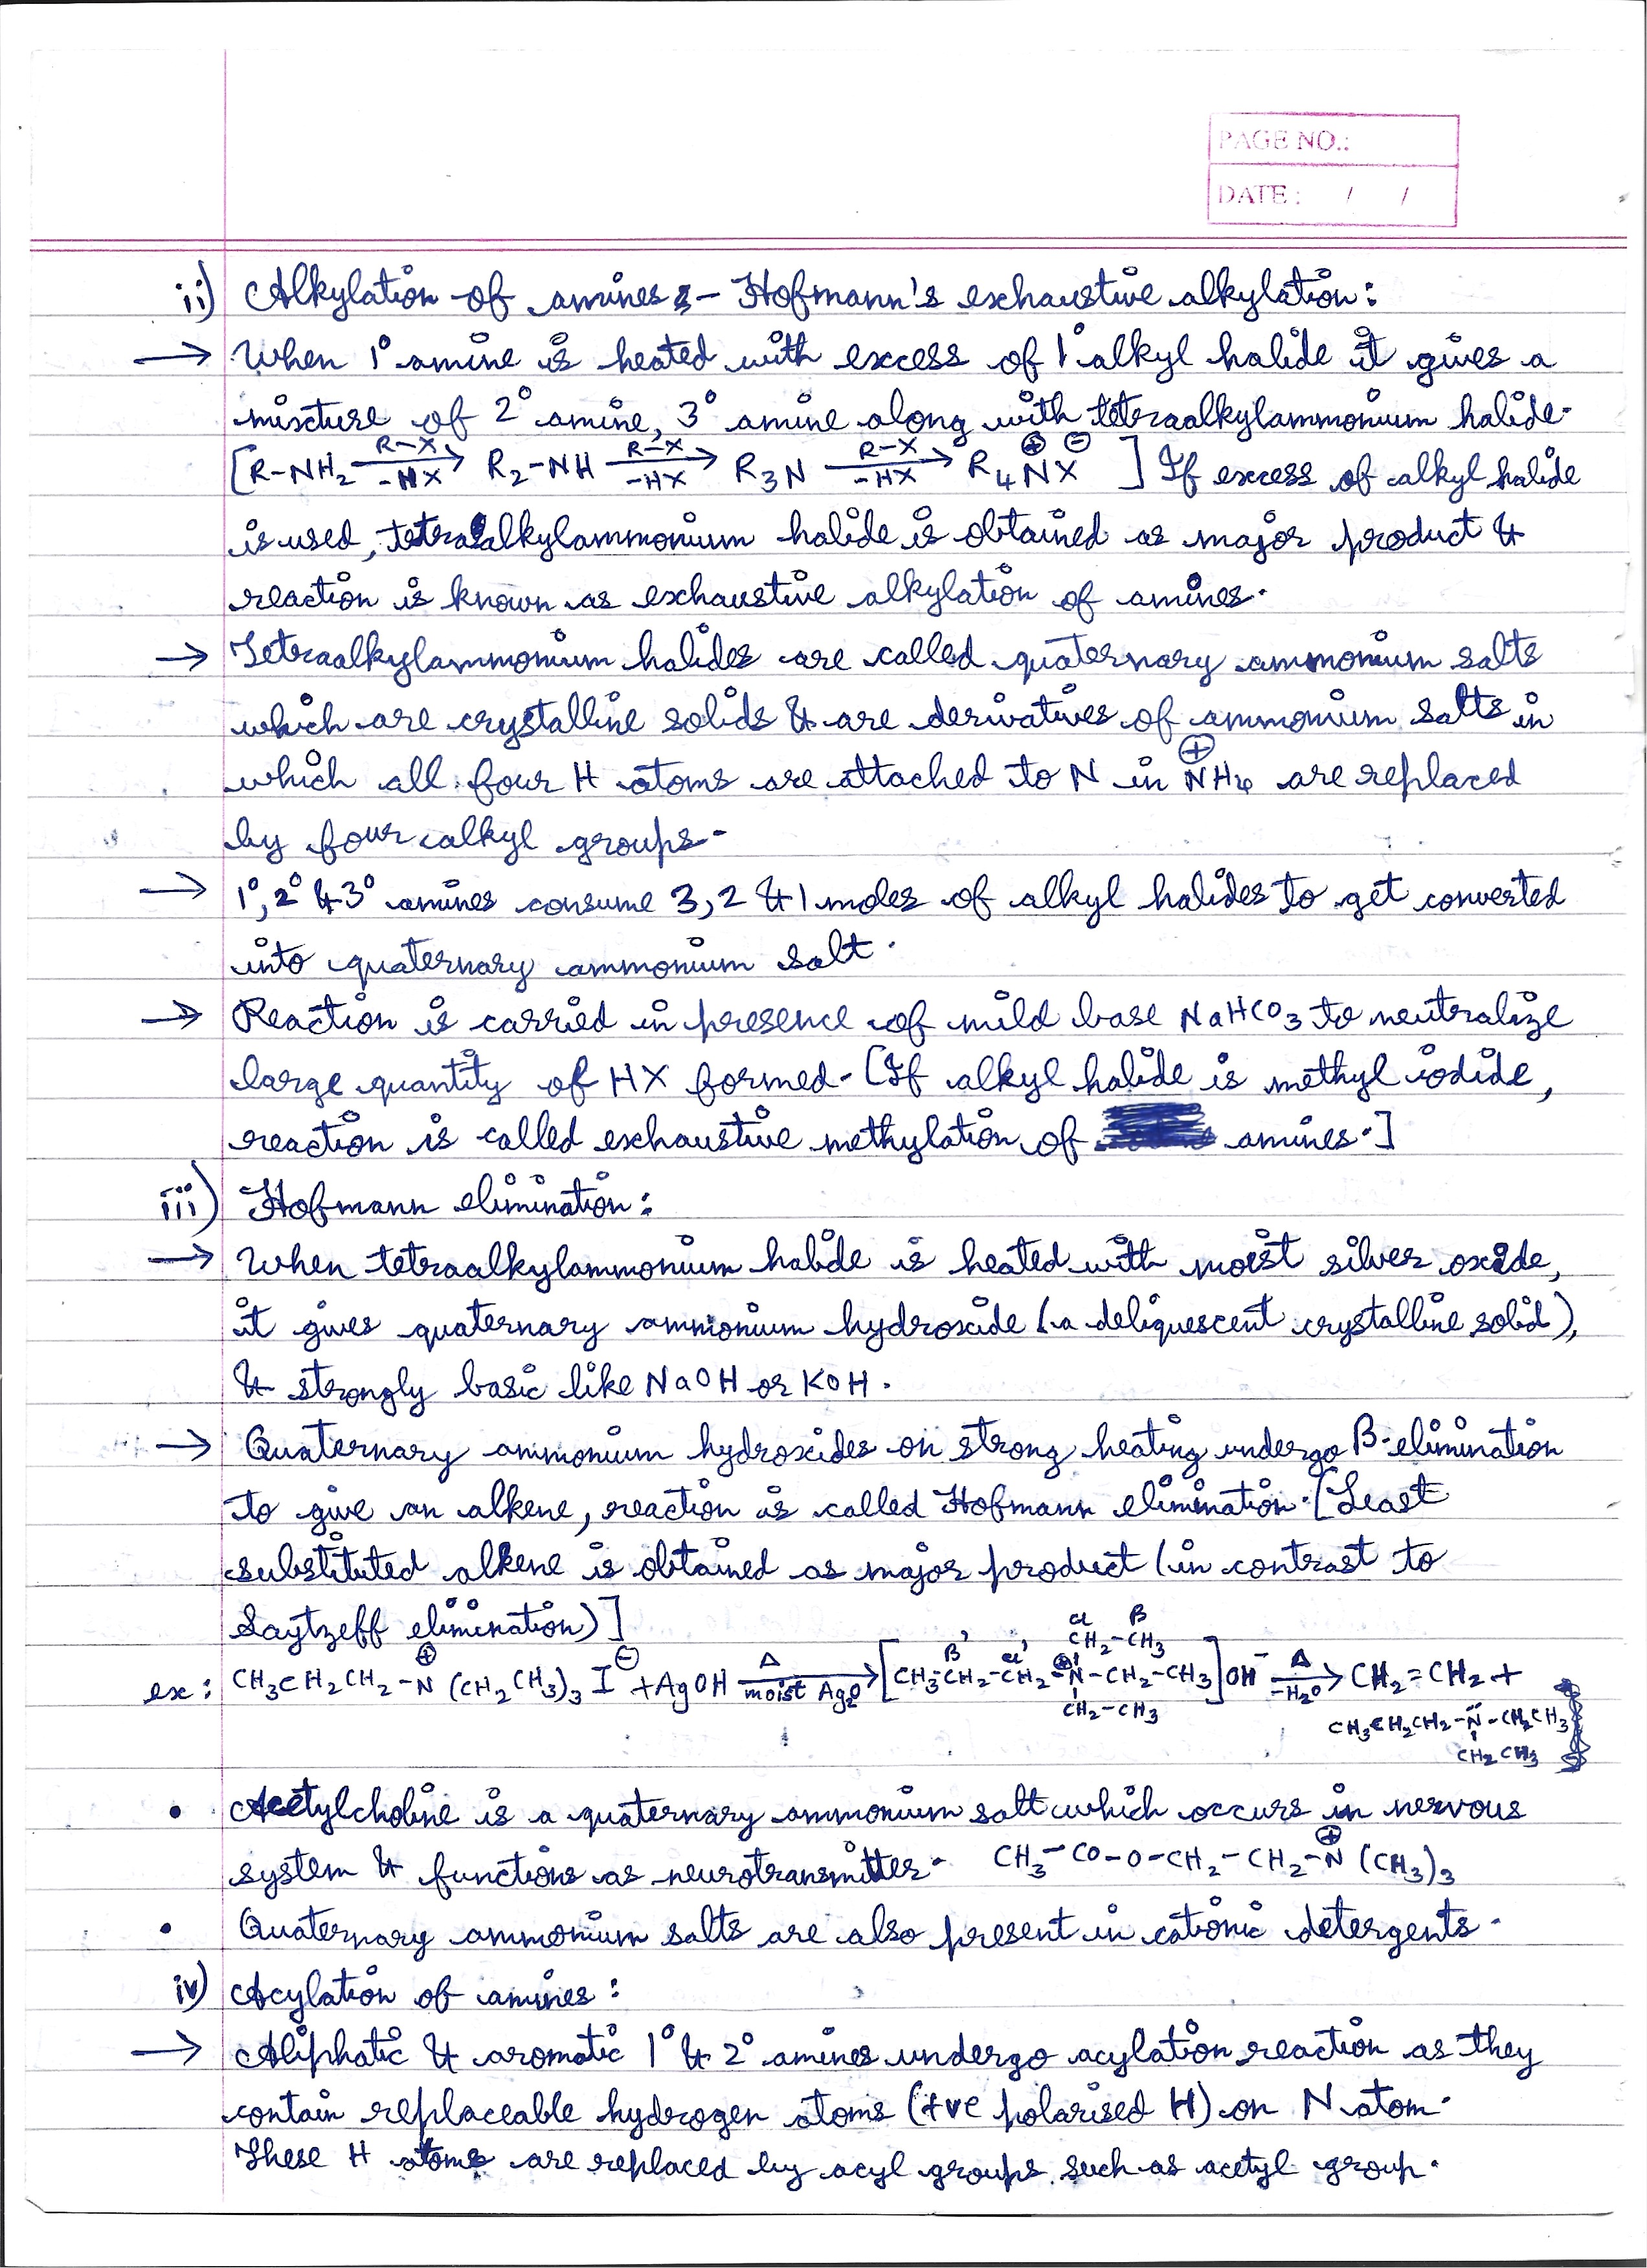 PAGE NO.:
DATE : / /
ii) Alkylation of amines :- Hofmann's exhaustive alkylation:
→ When 1° amine is heated with excess of 1° alkyl halide it gives a
mixture of 2° amine, 3° amine along with tetraalkylammonium halide.
[R-NH₂ —R-X/-HX→ R₂-NH —R-X/-HX→ R₃N —R-X/-HX→ R₄N⊕X⊖ ] If excess of alkyl halide
is used, tetraalkylammonium halide is obtained as major product &
reaction is known as exhaustive alkylation of amines.
→ Tetraalkylammonium halides are called quaternary ammonium salts
which are crystalline solids & are derivatives of ammonium salts in
which all four H atoms are attached to N in N⊕H₄ are replaced
by four alkyl groups.
→ 1°, 2° & 3° amines consume 3, 2 & 1 moles of alkyl halides to get converted
into quaternary ammonium salt.
→ Reaction is carried in presence of mild base NaHCO₃ to neutralize
large quantity of HX formed. [If alkyl halide is methyl iodide,
reaction is called exhaustive methylation of amines.]
iii) Hofmann elimination:
→ When tetraalkylammonium halide is heated with moist silver oxide,
it gives quaternary ammonium hydroxide (a deliquescent crystalline solid),
& strongly basic like NaOH or KOH.
→ Quaternary ammonium hydroxides on strong heating undergo β-elimination
to give an alkene, reaction is called Hofmann elimination. [Least
substituted alkene is obtained as major product (in contrast to
Saytzeff elimination)]
α β
CH₂-CH₃
β' α'
ex: CH₃CH₂CH₂-N⊕(CH₂CH₃)₃ I⊖ + AgOH —Δ/moist Ag₂O→ [CH₃-CH₂-CH₂-N⊕-CH₂-CH₃]OH⁻ —Δ/-H₂O→ CH₂=CH₂ +
CH₂-CH₃
CH₃CH₂CH₂-N̈-CH₂CH₃
CH₂CH₃
• Acetylcholine is a quaternary ammonium salt which occurs in nervous
system & functions as neurotransmitter. CH₃-CO-O-CH₂-CH₂-N⊕(CH₃)₃
• Quaternary ammonium salts are also present in cationic detergents.
iv) Acylation of amines:
→ Aliphatic & aromatic 1° & 2° amines undergo acylation reaction as they
contain replaceable hydrogen atoms (+ve polarised H) on N atom.
These H atoms are replaced by acyl groups such as acetyl group.